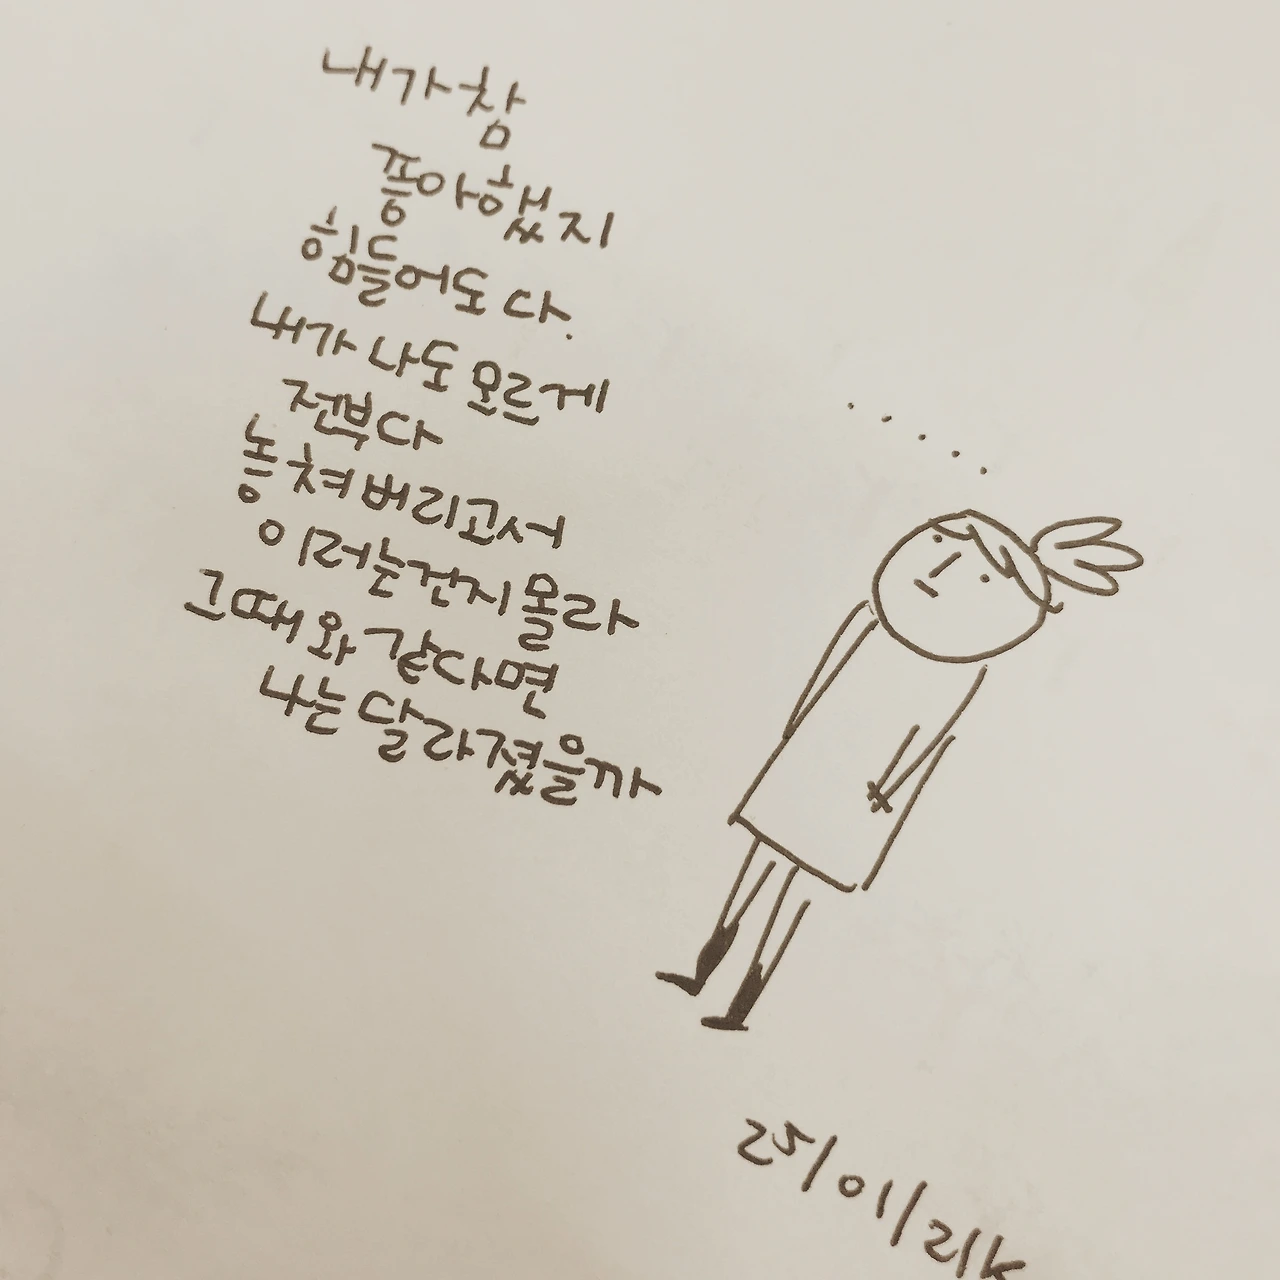 내가 참
좋아했지
힘들어도 다.
내가 나도 모르게
전부 다
놓쳐버리고서
이러는건지 몰라
그때와 같다면
나는 달라졌을까
.....
25/01/21K